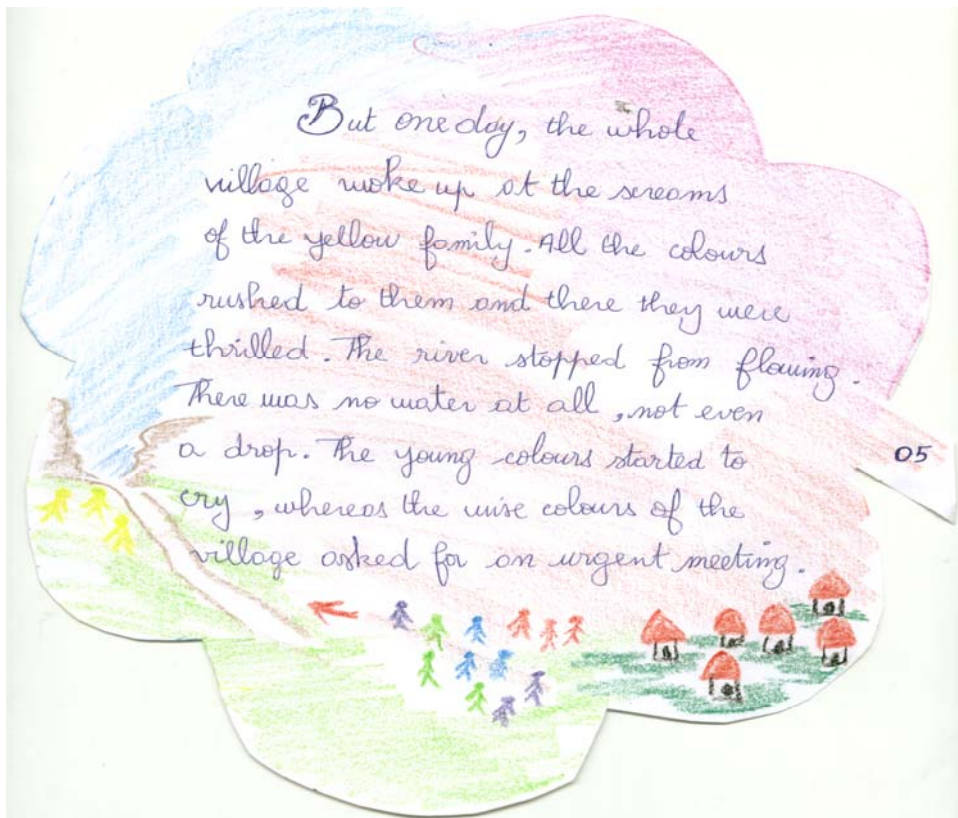 But one day, the whole
village woke up at the screams
of the yellow family. All the colours
rushed to them and there they were
thrilled. The river stopped from flowing.
There was no water at all, not even
a drop. The young colours started to
05
cry, whereas the wise colours of the
village asked for an urgent meeting.